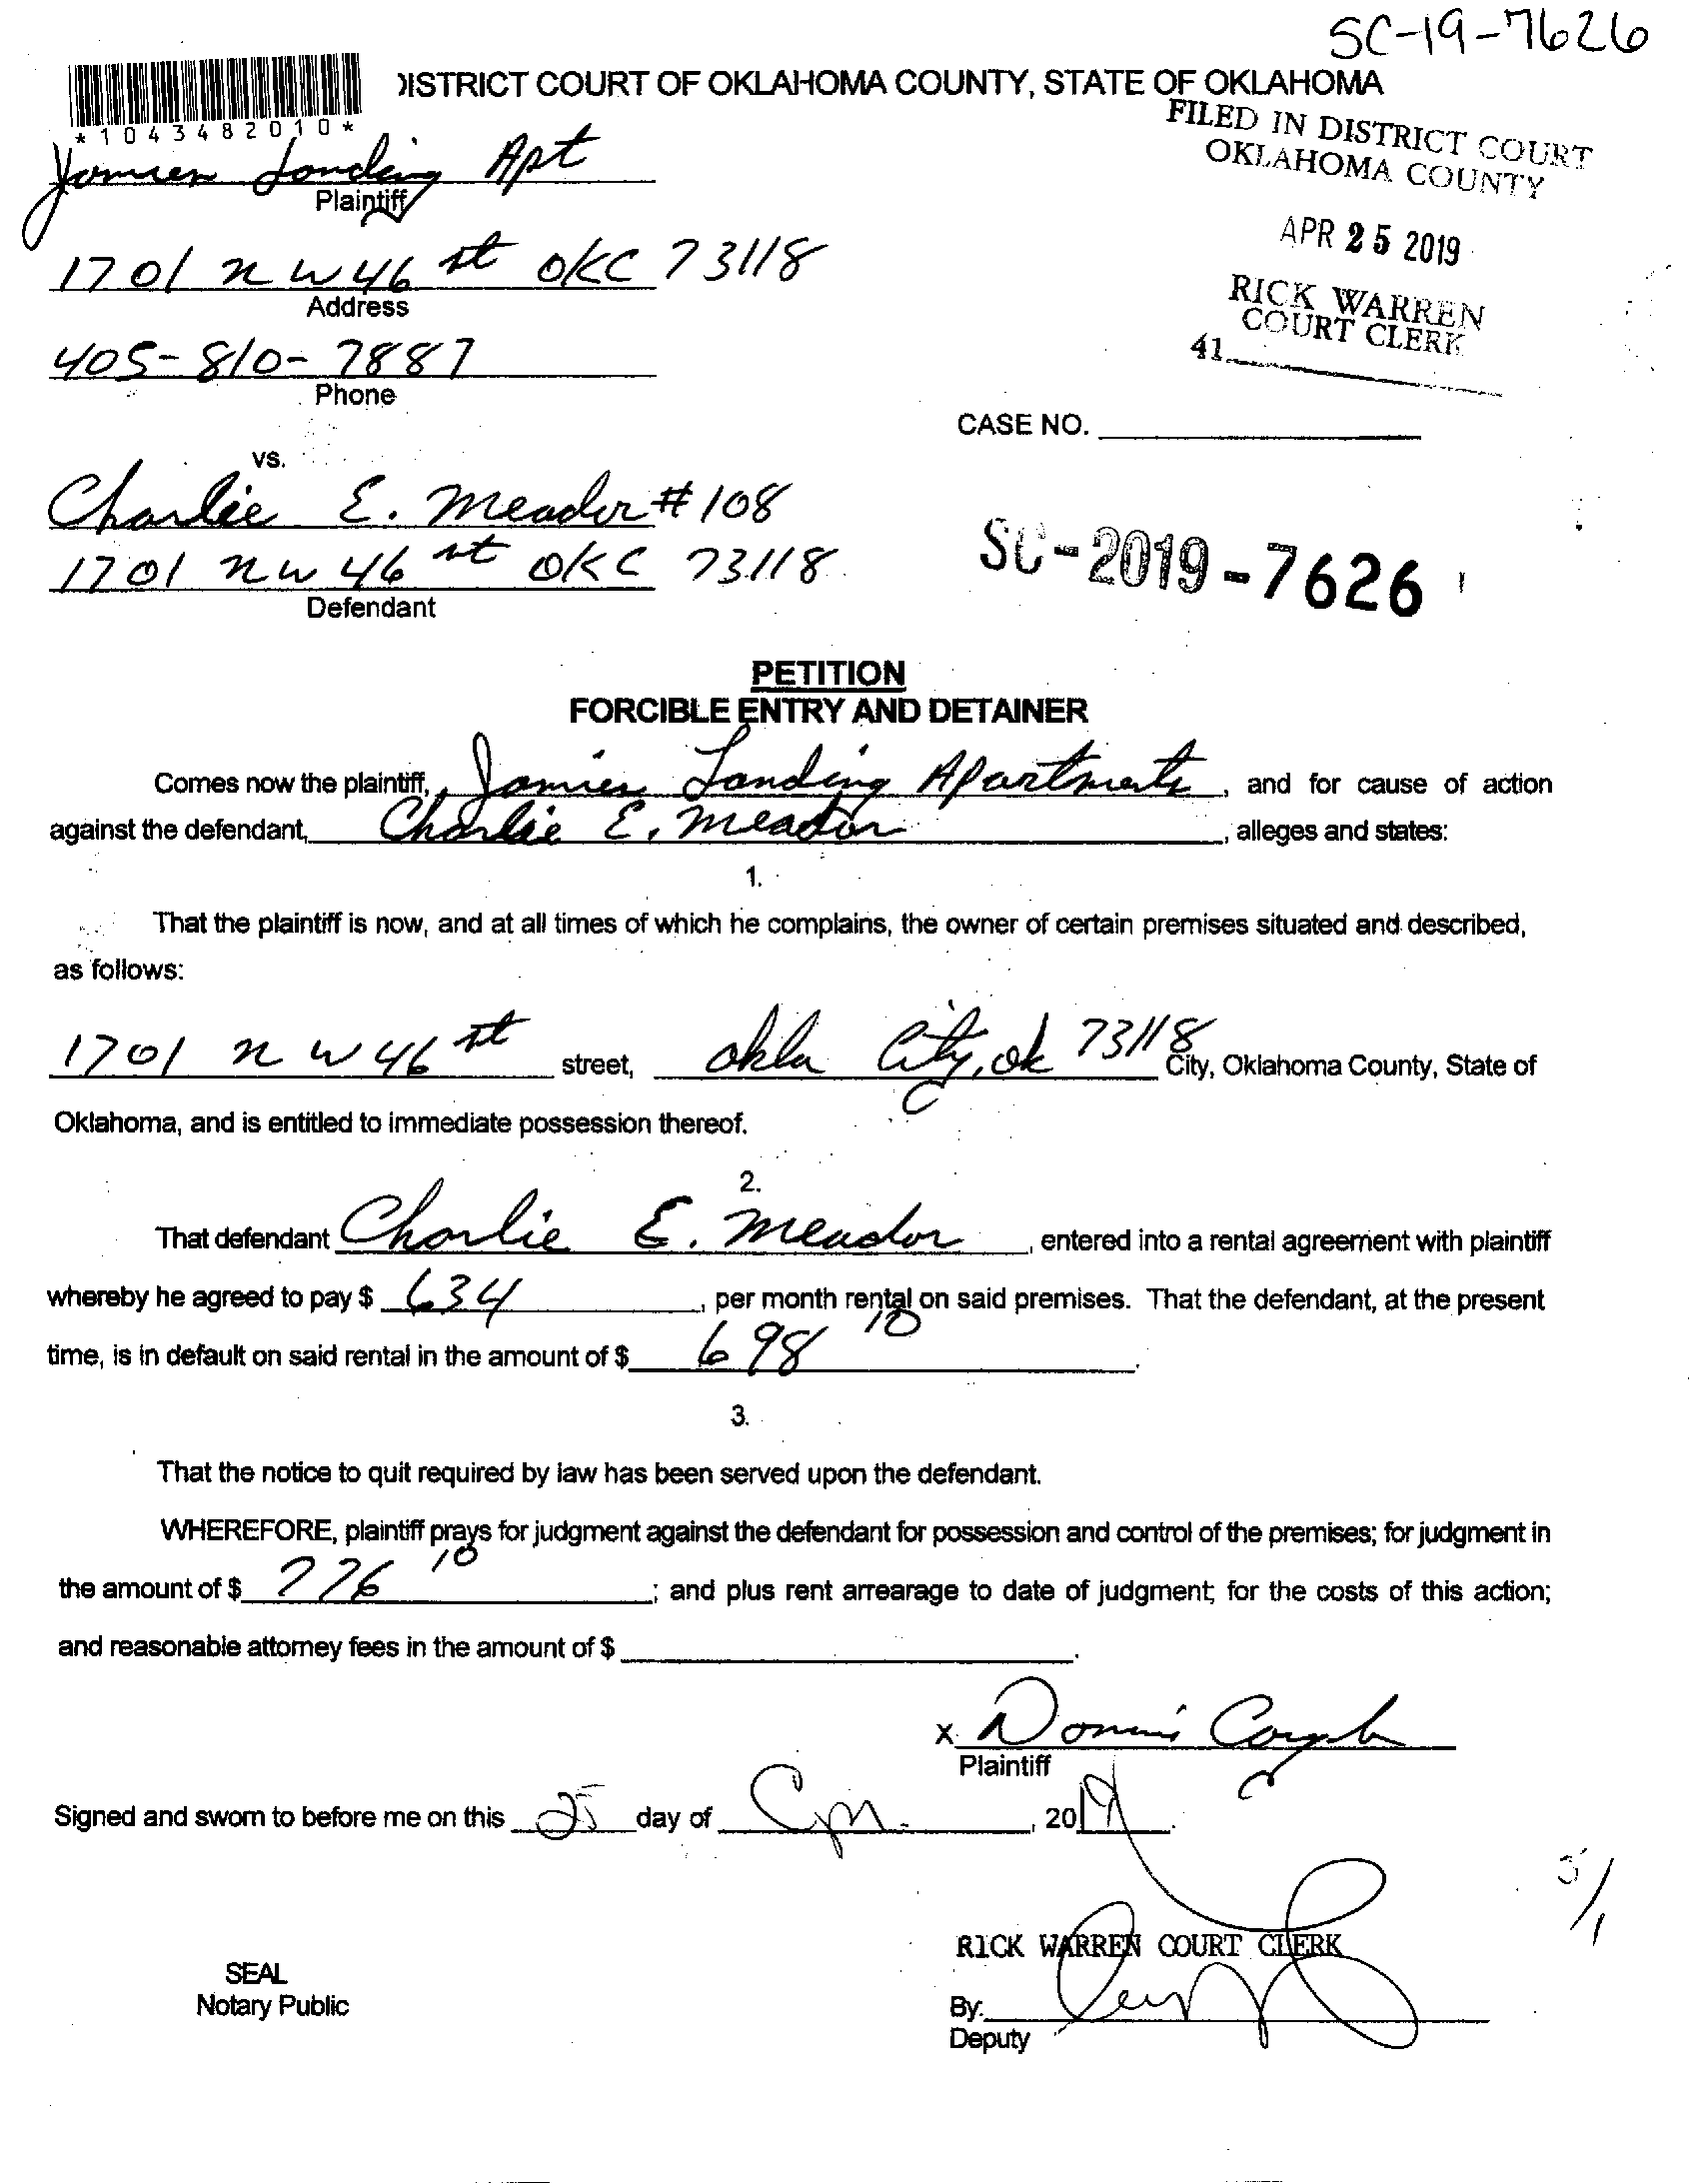 SC-19-7626
DISTRICT COURT OF OKLAHOMA COUNTY, STATE OF OKLAHOMA
*1043482010*
FILED IN DISTRICT COURT
OKLAHOMA COUNTY
Landing Apt
Plaintiff
APR 25 2019
1701 NW 46 st OKC 73118
Address
RICK WARREN
COURT CLERK
41
405-810-7887
Phone
CASE NO.
vs.
Charlie E. Meador #108
1701 NW 46 st OKC 73118
Defendant
SC-2019-7626
PETITION
FORCIBLE ENTRY AND DETAINER
Comes now the plaintiff, Landing Apartments, and for cause of action
against the defendant, Charlie E. Meador, alleges and states:
1.
That the plaintiff is now, and at all times of which he complains, the owner of certain premises situated and described,
as follows:
1701 NW 46 st street, Okla City, Ok 73118 City, Oklahoma County, State of
Oklahoma, and is entitled to immediate possession thereof.
2.
That defendant Charlie E. Meador, entered into a rental agreement with plaintiff
whereby he agreed to pay $ 634, per month rental on said premises. That the defendant, at the present
time, is in default on said rental in the amount of $ 698 10.
3.
That the notice to quit required by law has been served upon the defendant.
WHEREFORE, plaintiff prays for judgment against the defendant for possession and control of the premises; for judgment in
the amount of $ 776 10; and plus rent arrearage to date of judgment; for the costs of this action;
and reasonable attorney fees in the amount of $
X
Plaintiff
Signed and sworn to before me on this 25 day of, 2019.
5/1
RICK WARREN COURT CLERK
SEAL
Notary Public
By:
Deputy